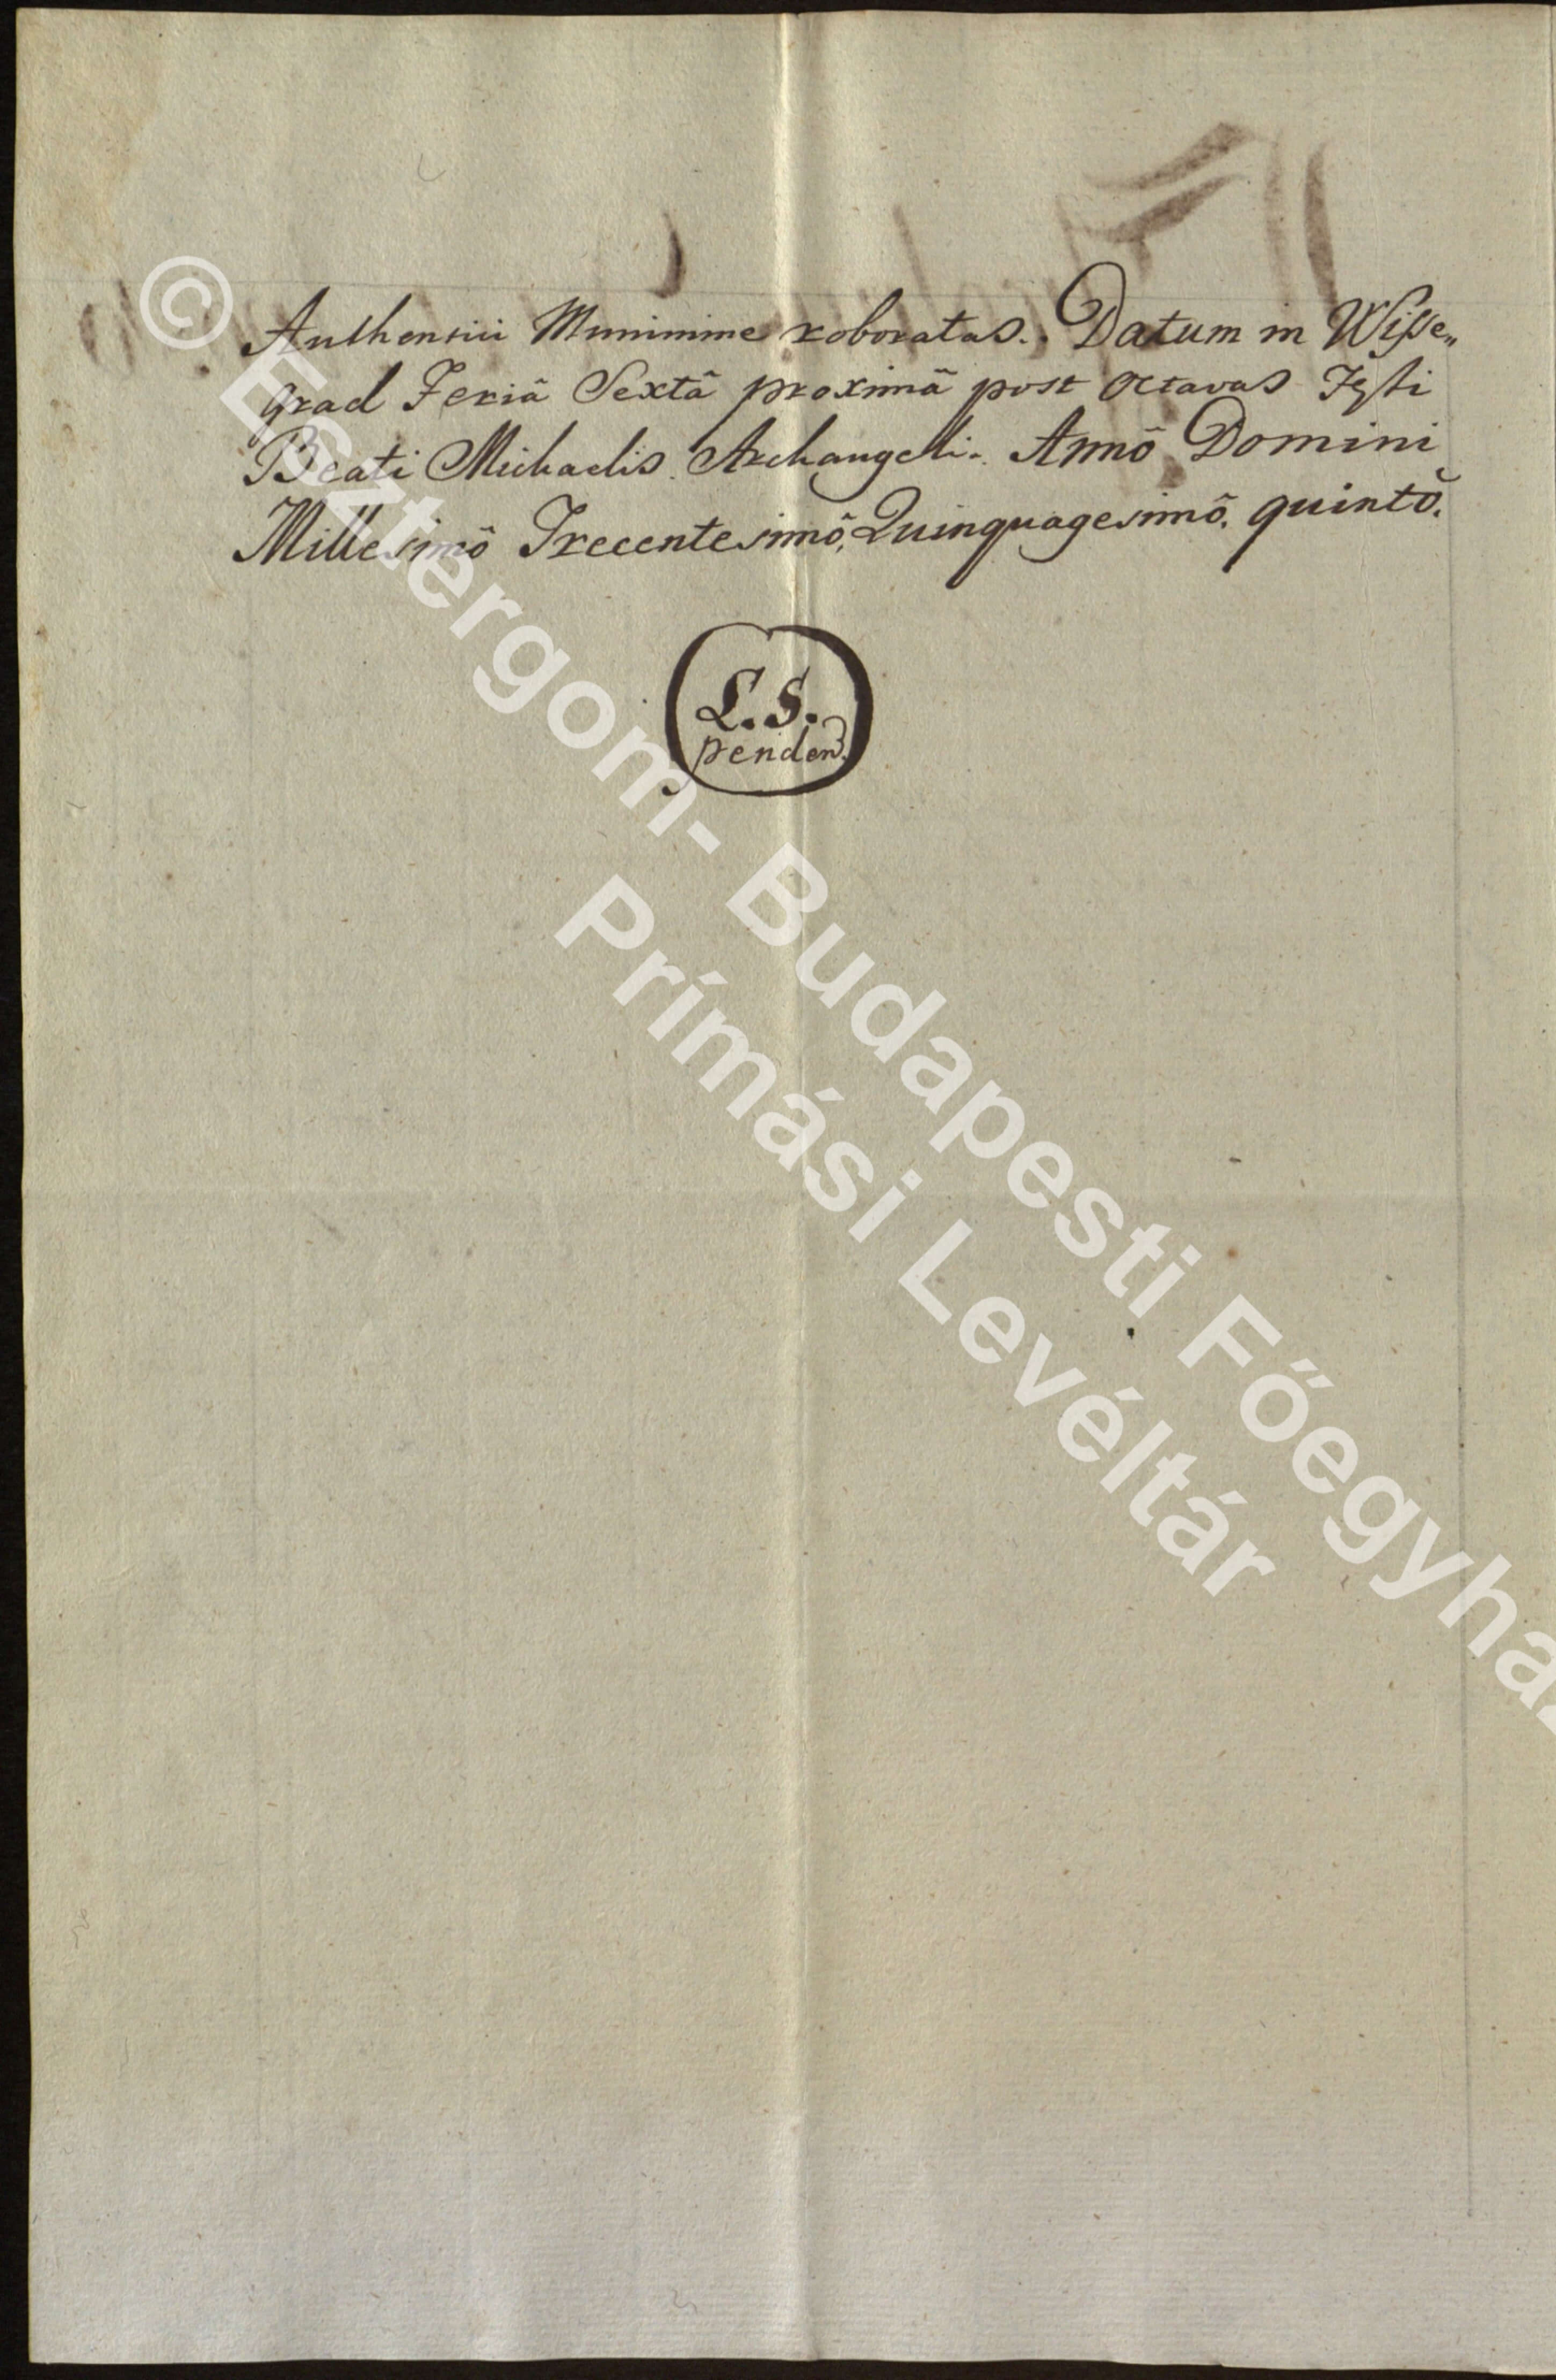 Authentici Munimine roboratas. Datum in Wisse„
grad Feriâ Sextâ proximâ post Octavas Festi
Beati Michaelis Archangeli. Annô Domini
Millesimô Trecentesimô, Quinquagesimô, quintô.
L. S.
penden.
© Esztergom- Budapesti Főegyház
Prímási Levéltár